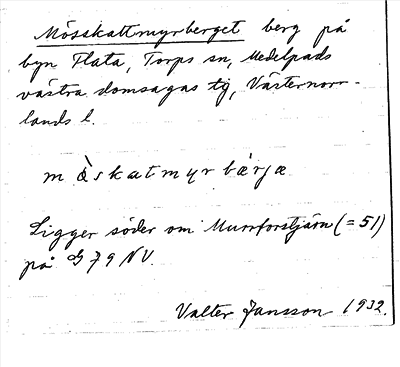 Mösskattmyrberget berg på
byn Flata, Torps sn, Medelpads
västra domsagas tg, Västernorr-
lands l.
mɑ̀skatmyrbærjæ
Ligger söder om Murrforstjärn (= 51)
på G 79 NV.
Valter Jansson 1932.